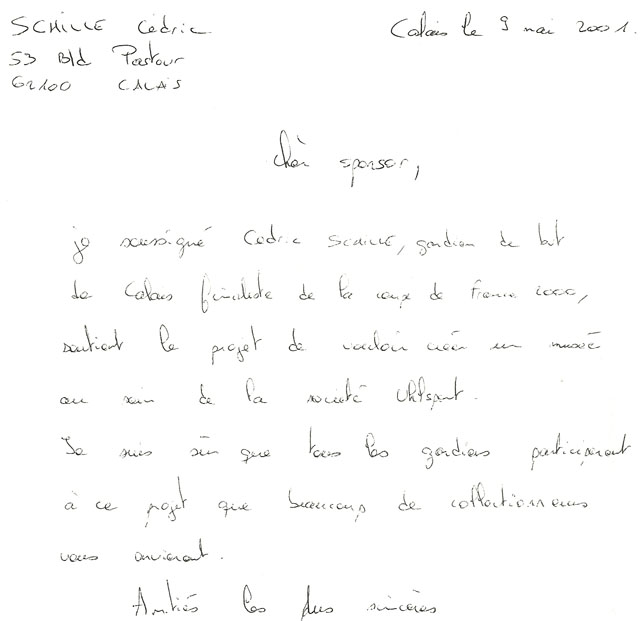 SCHILLE Cédric
Calais le 9 mai 2001.
53 Bld Pasteur
62100 CALAIS
cher sponsor,
je soussigné Cédric SCHILLE, gardien de but
de Calais finaliste de la coupe de France 2000,
soutient le projet de vouloir créer un musée
au sein de la société Uhlsport.
Je suis sûr que tous les gardiens participeront
à ce projet que beaucoup de collectionneurs
vous envieront.
Amitiés les plus sincères